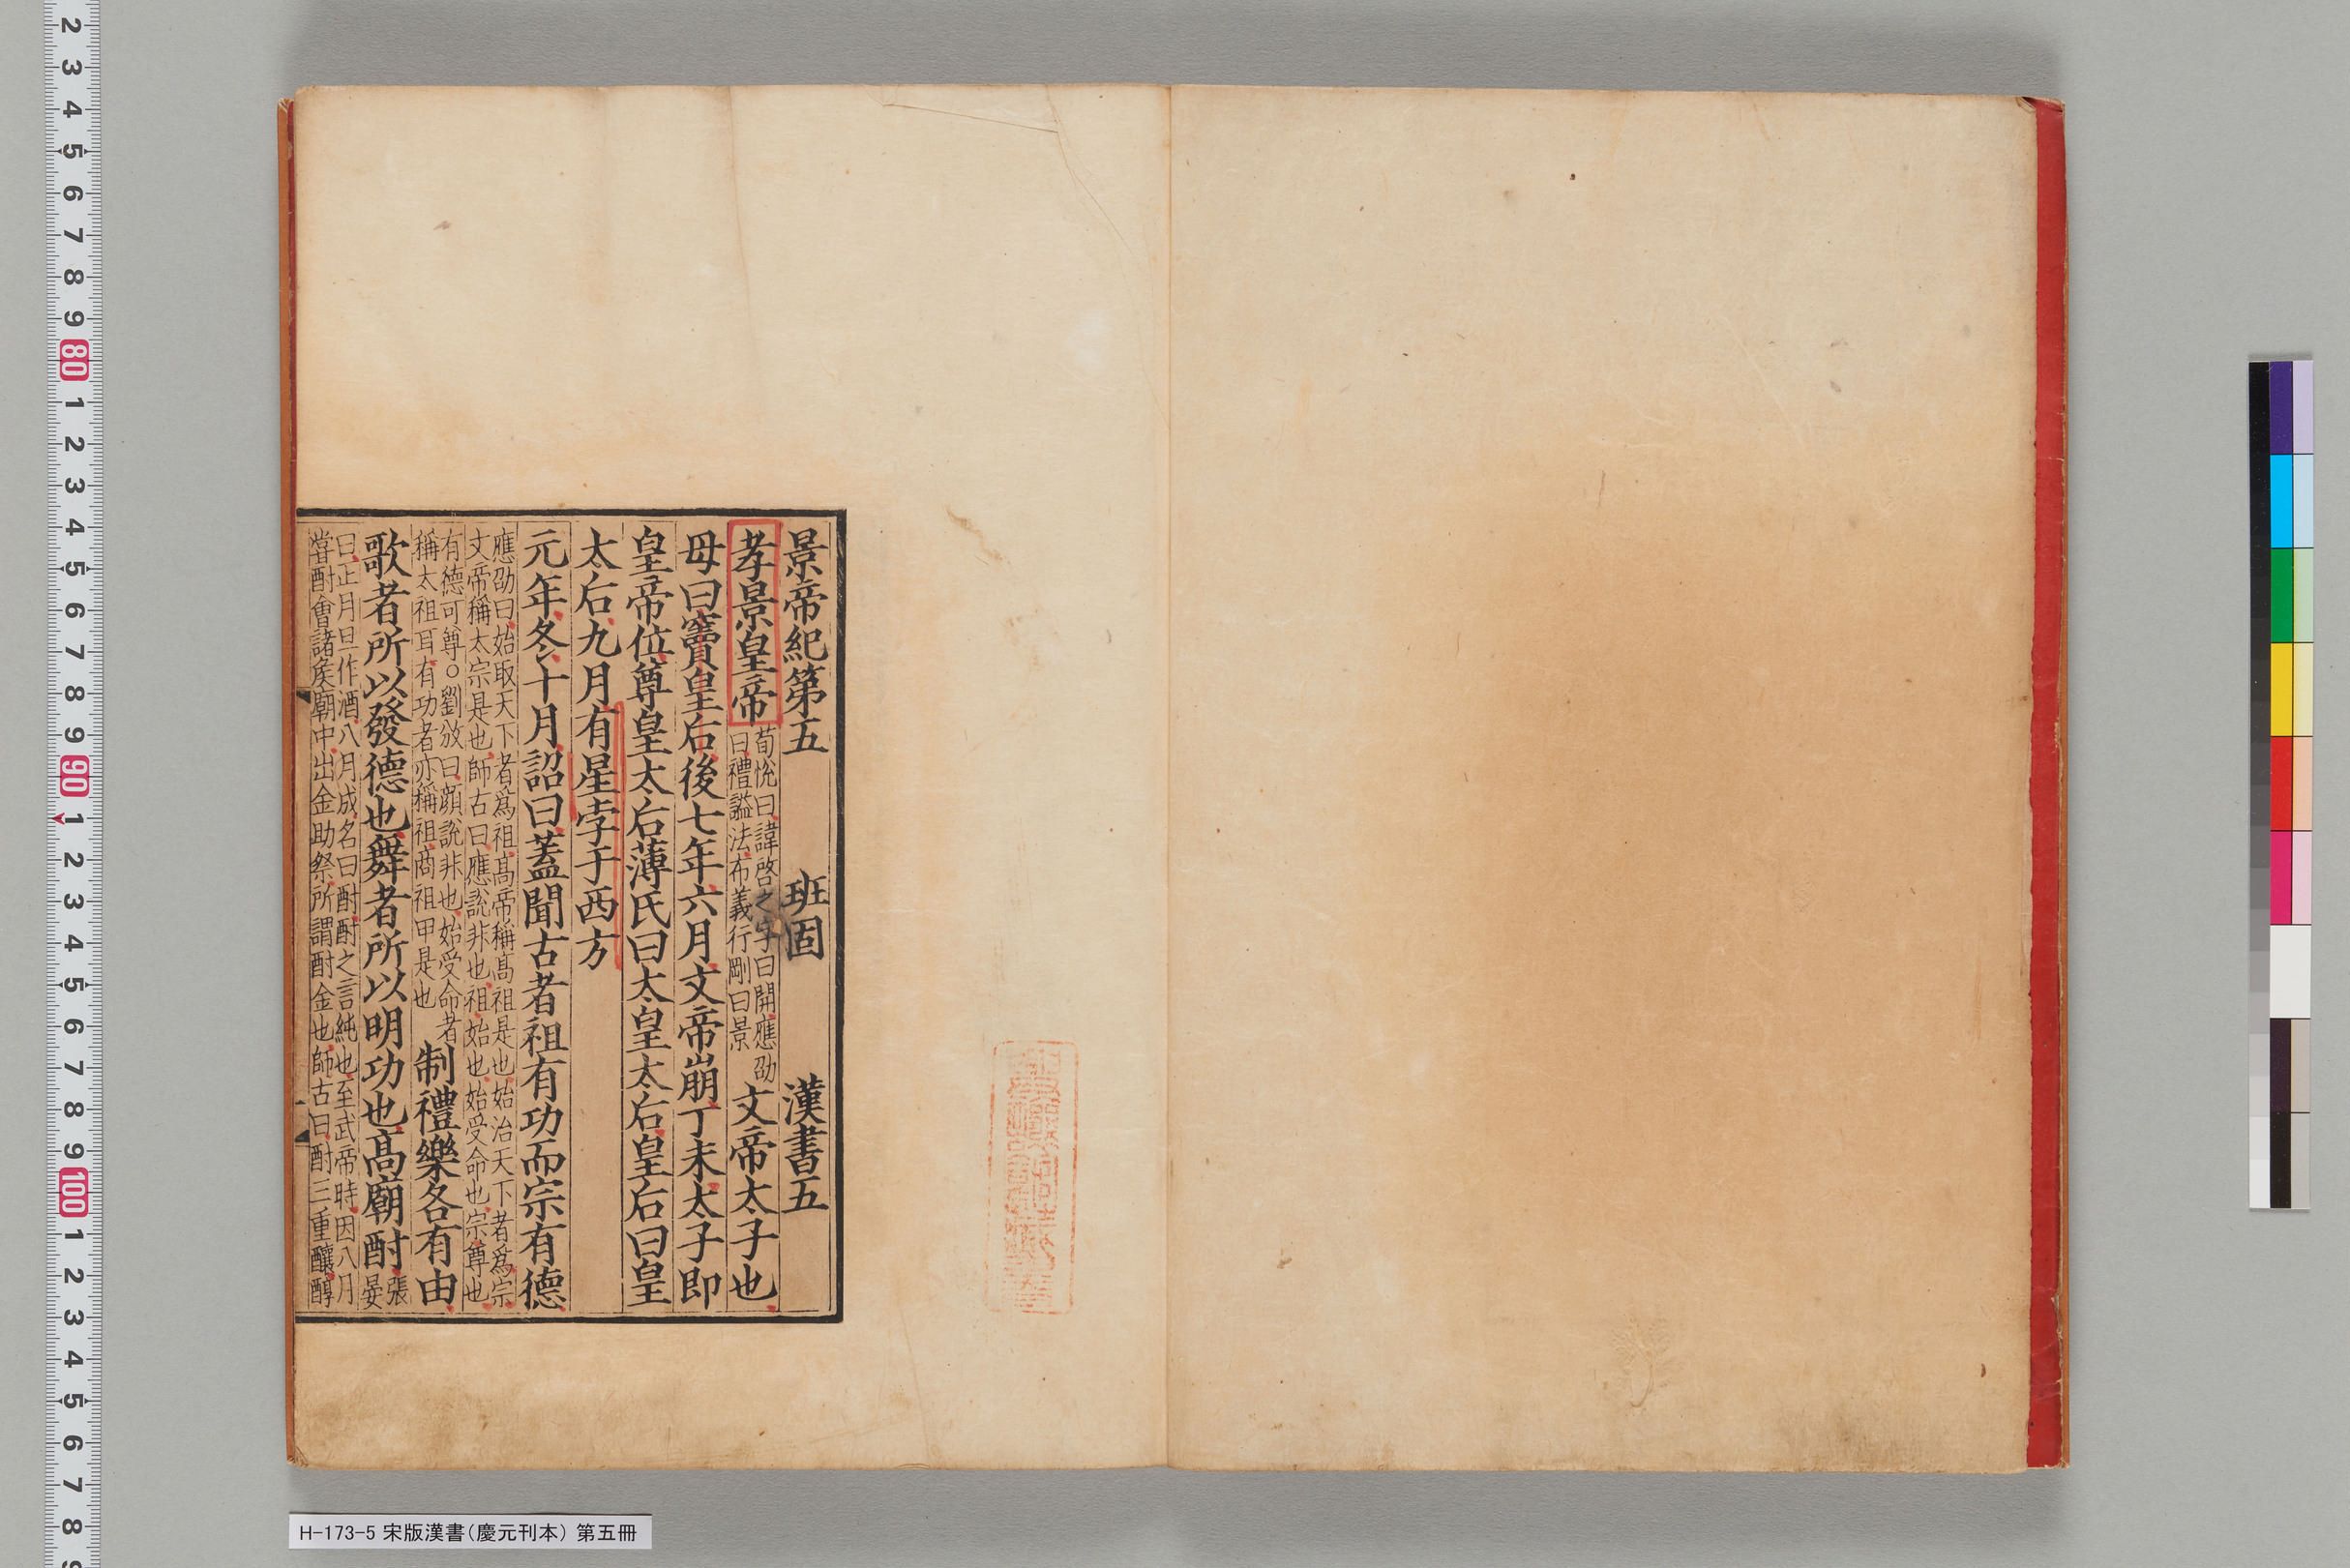 景帝紀第五 班固 漢書五
孝景皇帝 荀悅曰諱啓之字曰開應劭曰禮謚法布義行剛曰景 文帝太子也
母曰竇皇后後七年六月文帝崩丁未太子即
皇帝位尊皇太后薄氏曰太皇太后皇后曰皇
太后九月有星孛于西方
元年冬十月詔曰蓋聞古者祖有功而宗有德
應劭曰始取天下者爲祖髙帝稱髙祖是也始治天下者爲宗
文帝稱太宗是也師古曰應說非也祖始也始受命也宗尊也
有德可尊○劉攽曰顔說非也始受命者
稱太祖耳有功者亦稱祖商祖甲是也 制禮樂各有由
歌者所以發德也舞者所以明功也髙廟酎 張晏
曰正月旦作酒八月成名曰酎酎之言純也至武帝時因八月
甞酎會諸侯廟中出金助祭所謂酎金也師古曰酎三重釀醇
H-173-5 宋版漢書(慶元刊本) 第五冊
2 3 4 5 6 7 8 9 80 1 2 3 4 5 6 7 8 9 90 1 2 3 4 5 6 7 8 9 100 1 2 3 4 5 6 7 8 9